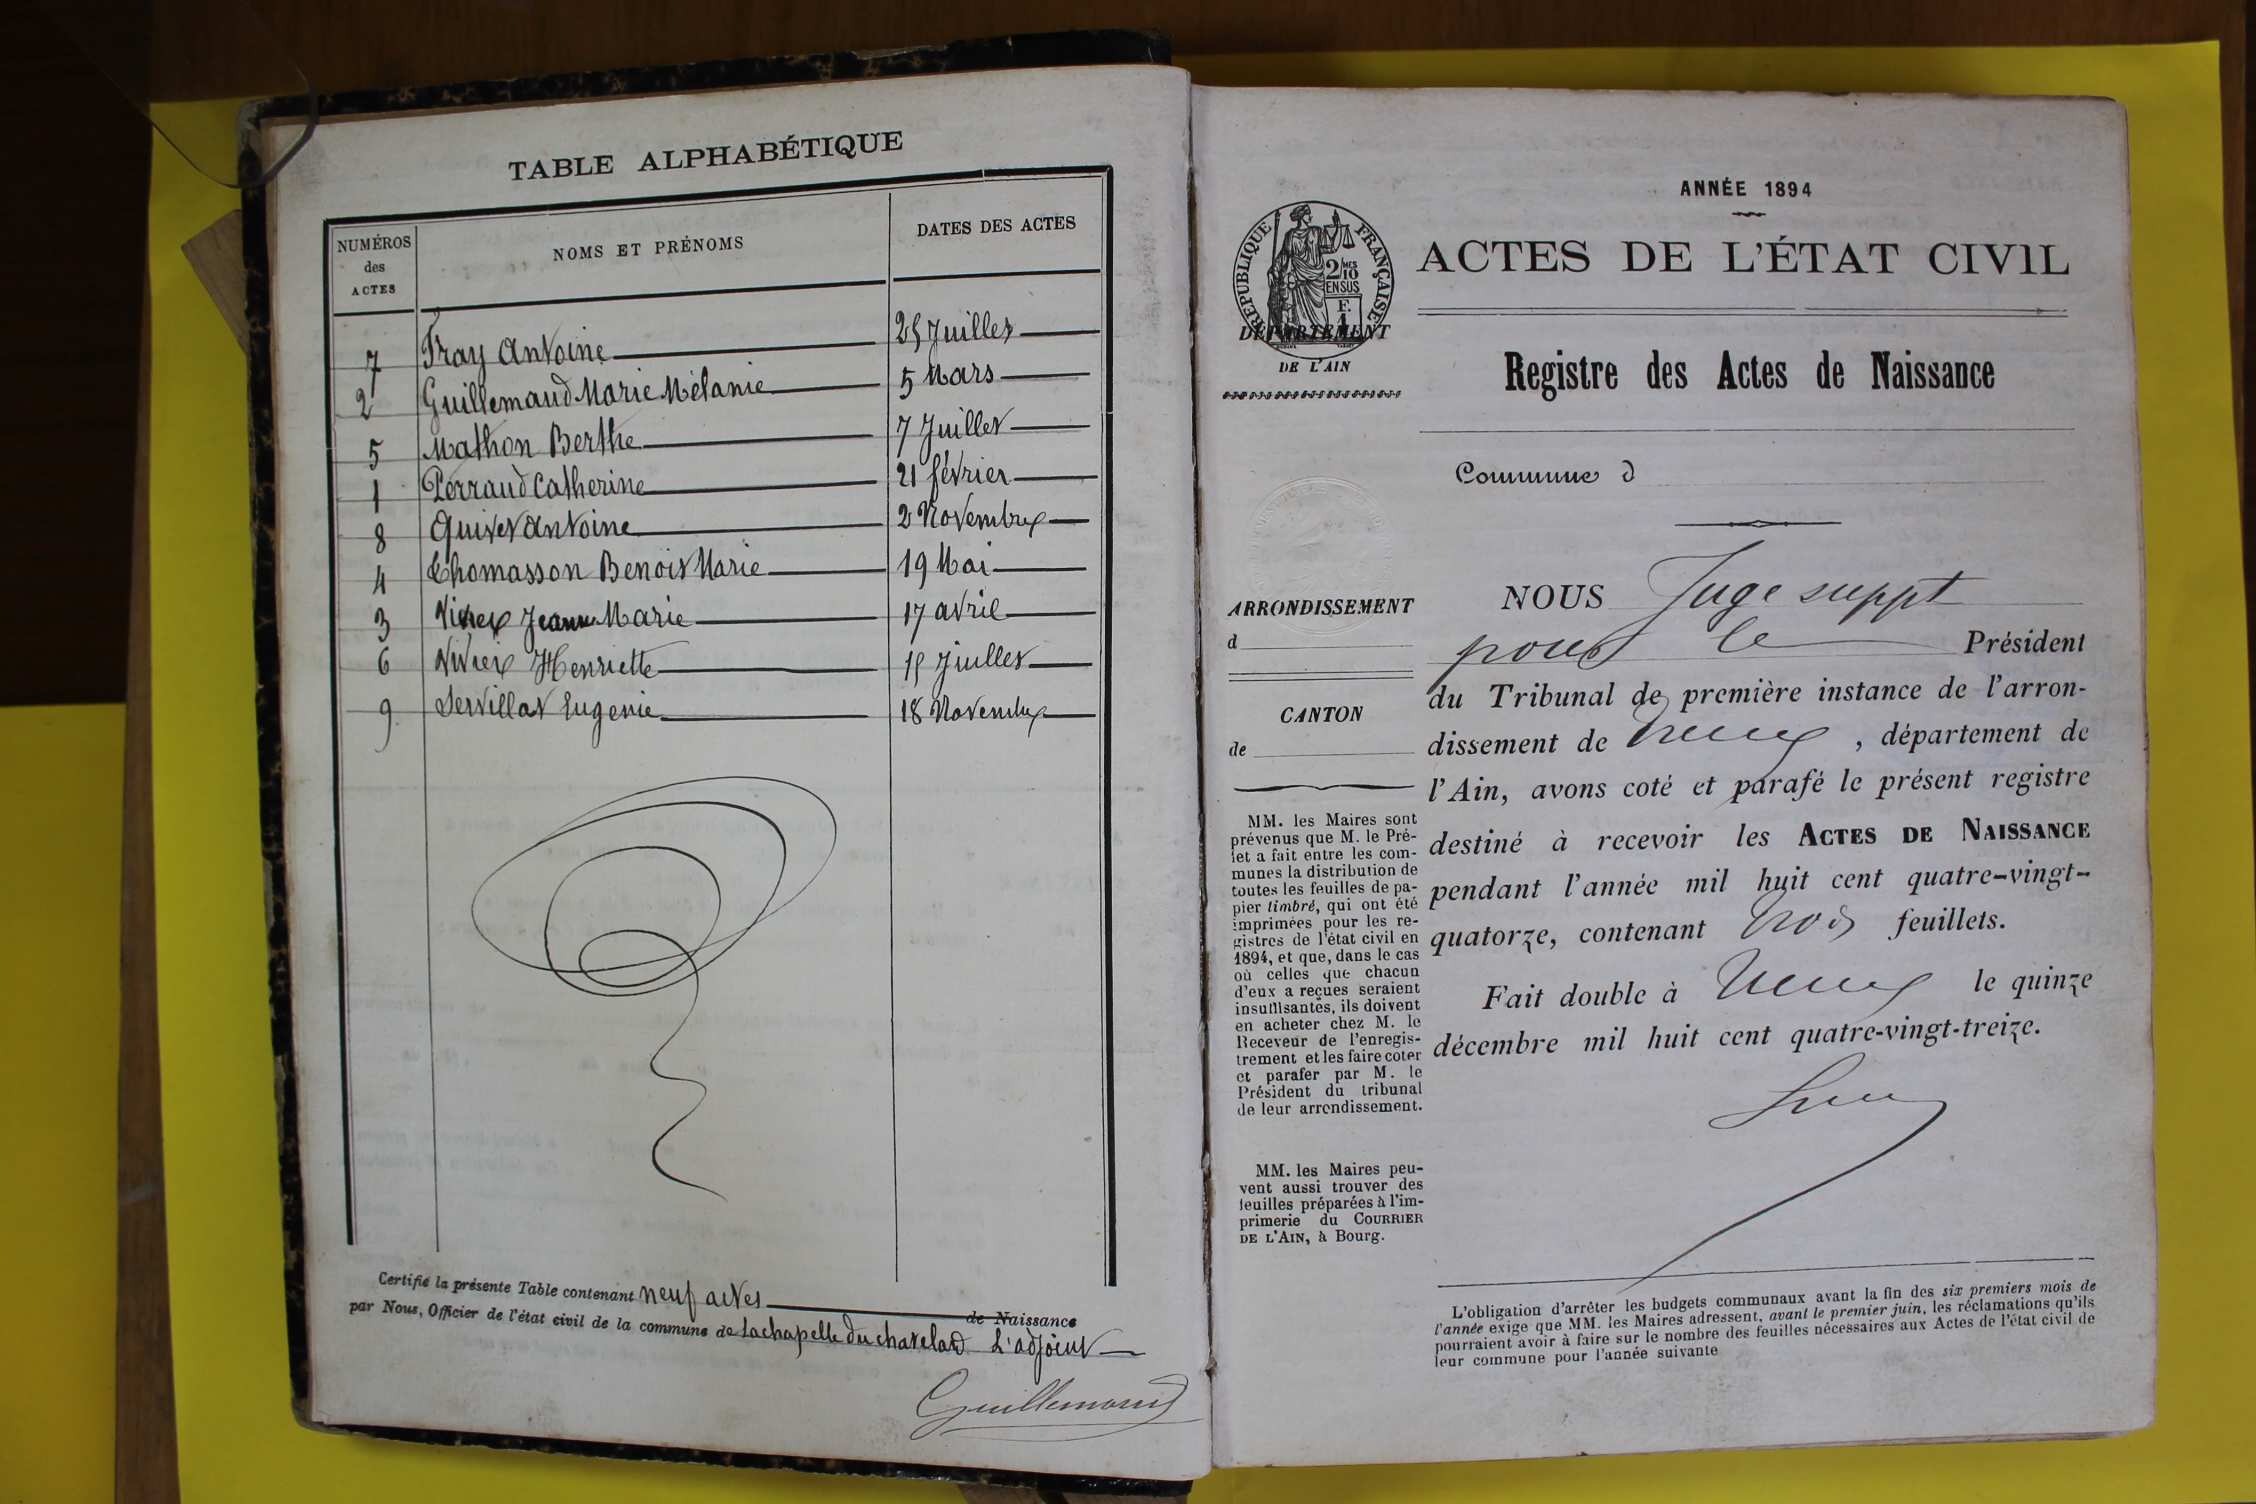 TABLE ALPHABÉTIQUE
NUMÉROS des ACTES NOMS ET PRÉNOMS DATES DES ACTES
7 Fray Antoine 25 Juillet
2 Guillemaud Marie Mélanie 5 Mars
5 Mathon Berthe 7 Juillet
1 Perraud Catherine 21 février
8 Quivet Antoine 2 Novembre
4 Thomasson Benoit Marie 19 Mai
3 Marie 17 avril
6 Vivier Henriette 15 Juillet
9 Servillat Eugenie 18 Novembre
Certifié la présente Table contenant neuf actes de Naissance
par Nous, Officier de l'état civil de la commune de Lachapelle du chatelard L'adjoint
Guillemaud
ANNÉE 1894
RÉPUBLIQUE FRANÇAISE
2/10MES EN SUS
F.
1
ACTES DE L'ÉTAT CIVIL
DÉPARTEMENT
DE L'AIN
Registre des Actes de Naissance
Commune d
ARRONDISSEMENT
d
CANTON
de
MM. les Maires sont
prévenus que M. le Pré-
fet a fait entre les com-
munes la distribution de
toutes les feuilles de pa-
pier timbré, qui ont été
imprimées pour les re-
gistres de l'état civil en
1894, et que, dans le cas
où celles que chacun
d'eux a reçues seraient
insuffisantes, ils doivent
en acheter chez M. le
Receveur de l'enregis-
trement et les faire coter
et parafer par M. le
Président du tribunal
de leur arrondissement.
MM. les Maires peu-
vent aussi trouver des
feuilles préparées à l'im-
primerie du COURRIER
DE L'AIN, à Bourg.
NOUS Juge suppt
pour le Président
du Tribunal de première instance de l'arron-
dissement de Trévoux, département de
l'Ain, avons coté et parafé le présent registre
destiné à recevoir les ACTES DE NAISSANCE
pendant l'année mil huit cent quatre-vingt-
quatorze, contenant trois feuillets.
Fait double à Trévoux le quinze
décembre mil huit cent quatre-vingt-treize.
L'obligation d'arrêter les budgets communaux avant la fin des six premiers mois de
l'année exige que MM. les Maires adressent, avant le premier juin, les réclamations qu'ils
pourraient avoir à faire sur le nombre des feuilles nécessaires aux Actes de l'état civil de
leur commune pour l'année suivante